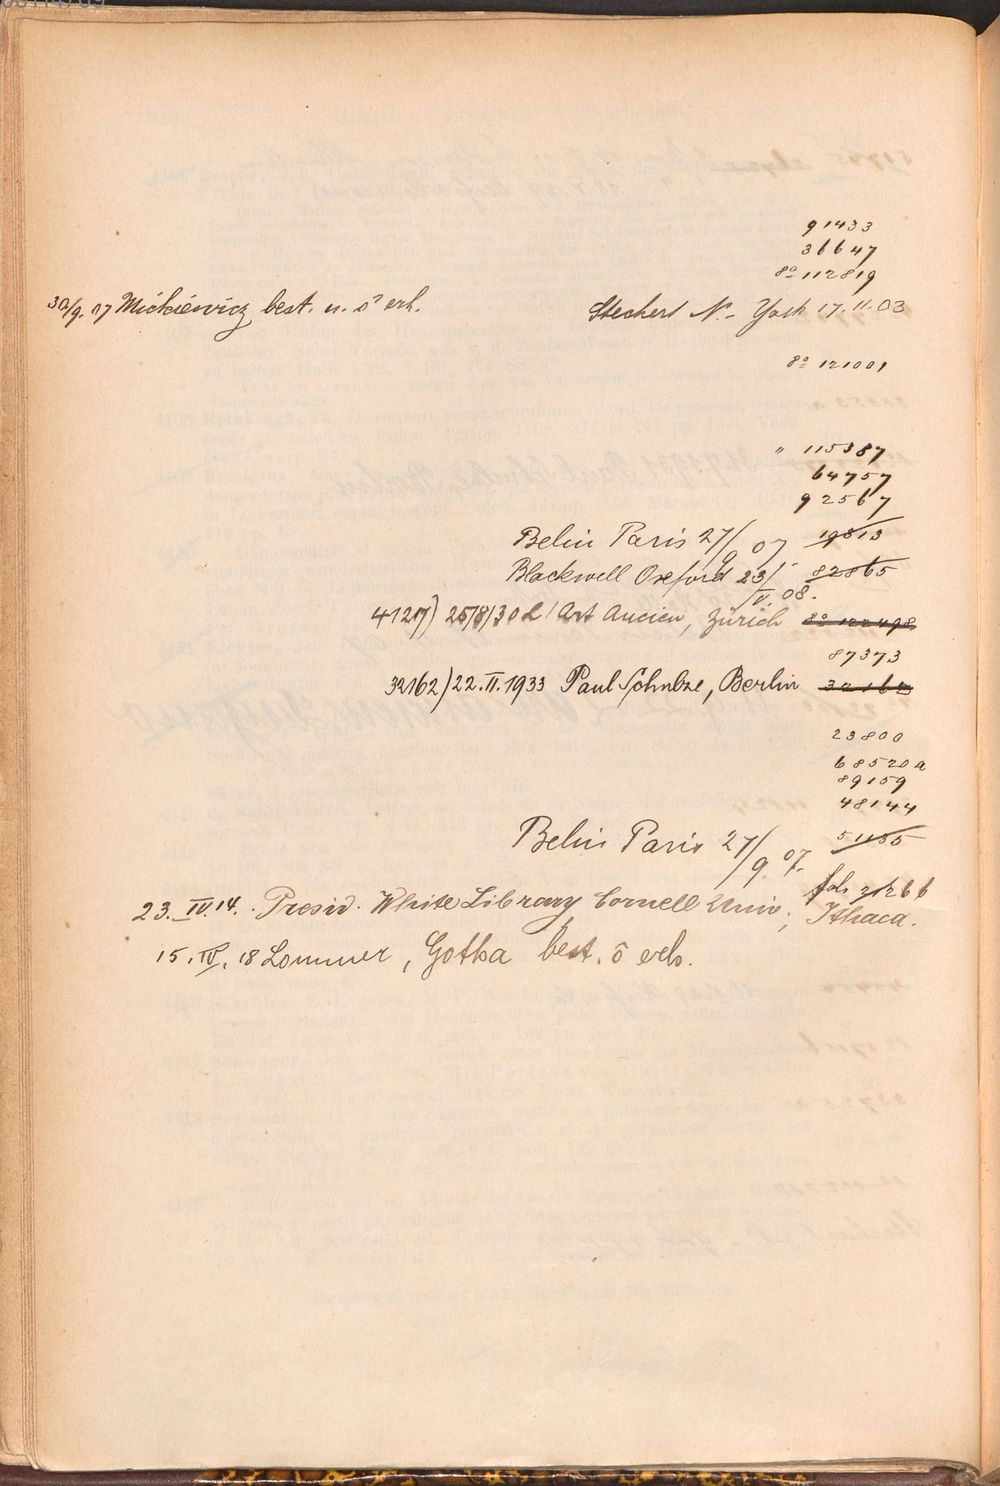 91433
36647
8° 112819
30/9. 07 Mickiewicz best. u. ō erh.
Stechert N.- York 17.11.03
8° 121001
" 115387
64757
92567
Belin Paris 27/9 07 19513
Blackwell Oxford 23/IV. 08. 82865
4127) 25/8/30 L'Art Ancien, Zürich 8° 122498
87373
32162) 22.II.1933 Paul Schulze, Berlin 32162
23800
68520a
89159
48144
Belin Paris 27/9. 07. 51155
fol. 21266
23. IV. 14. Presid. White Library, Cornell Univ., Ithaca.
15. IV. 18 Lommer, Gotha best. ō erh.